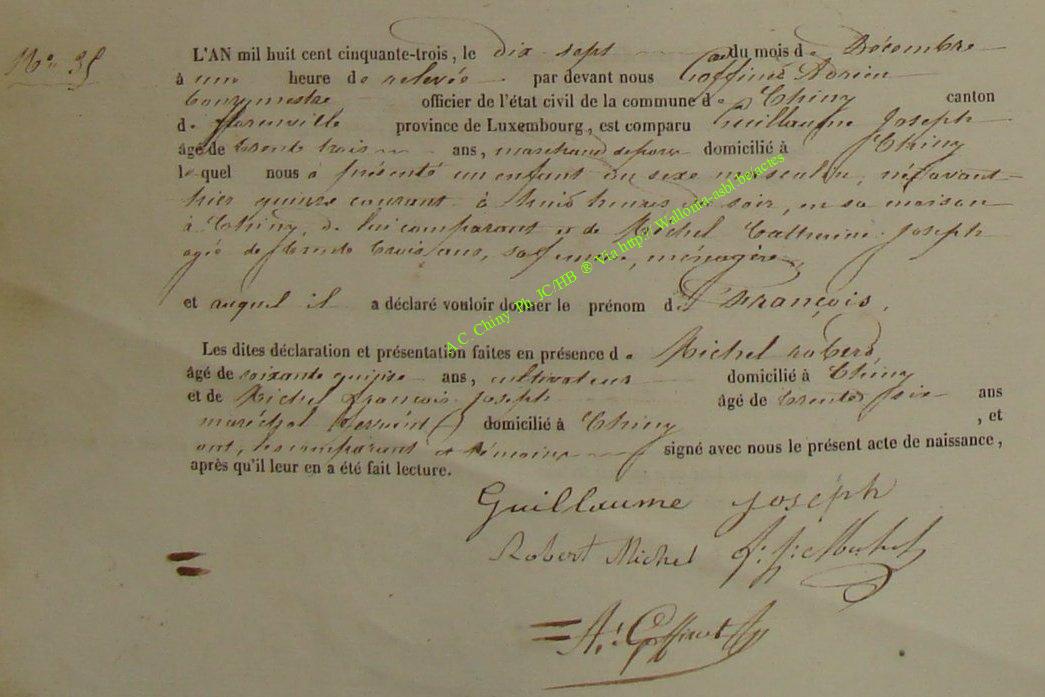 No 35
L'AN mil huit cent cinquante-trois, le dix sept du mois de Décembre
à une heure de relevée par devant nous Goffinet Adrien
bourgmestre officier de l'état civil de la commune de Chiny canton
de florenville province de Luxembourg, est comparu Guillaume Joseph
âgé de trente trois ans, marchand de porcs domicilié à Chiny
lequel nous a présenté un enfant du sexe masculin, né avant-
hier quinze courant à huit heures du soir, en sa maison
à Chiny, de lui comparant et de Michel Catherine Joseph
agée de trente trois ans, sa femme, ménagère,
et auquel il a déclaré vouloir donner le prénom de François.
Les dites déclaration et présentation faites en présence de Michel robert,
âgé de soixante quinze ans, cultivateur domicilié à Chiny
et de Michel françois joseph âgé de trente six ans
maréchal ferrant domicilié à Chiny, et
ont, les comparant et témoins signé avec nous le présent acte de naissance,
après qu'il leur en a été fait lecture.
Guillaume joséph
Robert Michel f: j: Michel
A: Goffinet
A.C. Chiny Ph JC/HB ® Via http://Wallonia-asbl.be/actes